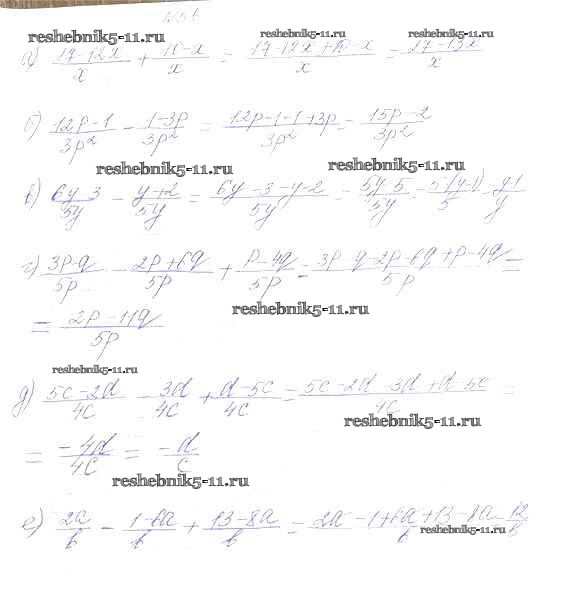 reshebnik5-11.ru reshebnik5-11.ru reshebnik5-11.ru
а) 17-12x/x + 10-x/x = 17-12x+10-x/x = 27-13x/x
б) 12p-1/3p² - 1-3p/3p² = 12p-1-1+3p/3p² = 15p-2/3p²
reshebnik5-11.ru reshebnik5-11.ru
в) 6y-3/5y - y+2/5y = 6y-3-y-2/5y = 5y-5/5y = 5(y-1)/5 = y-1/y
г) 3p-q/5p - 2p+6q/5p + p-4q/5p = 3p-q-2p-6q+p-4q/5p =
reshebnik5-11.ru
= 2p-11q/5p
reshebnik5-11.ru
д) 5c-2d/4c - 3d/4c + d-5c/4c = 5c-2d-3d+d-5c/4c =
reshebnik5-11.ru
= -4d/4c = -d/c
reshebnik5-11.ru
е) 2a/b - 1-6a/b + 13-8a/b = 2a-1+6a+13-8a/b = 12/b
reshebnik5-11.ru